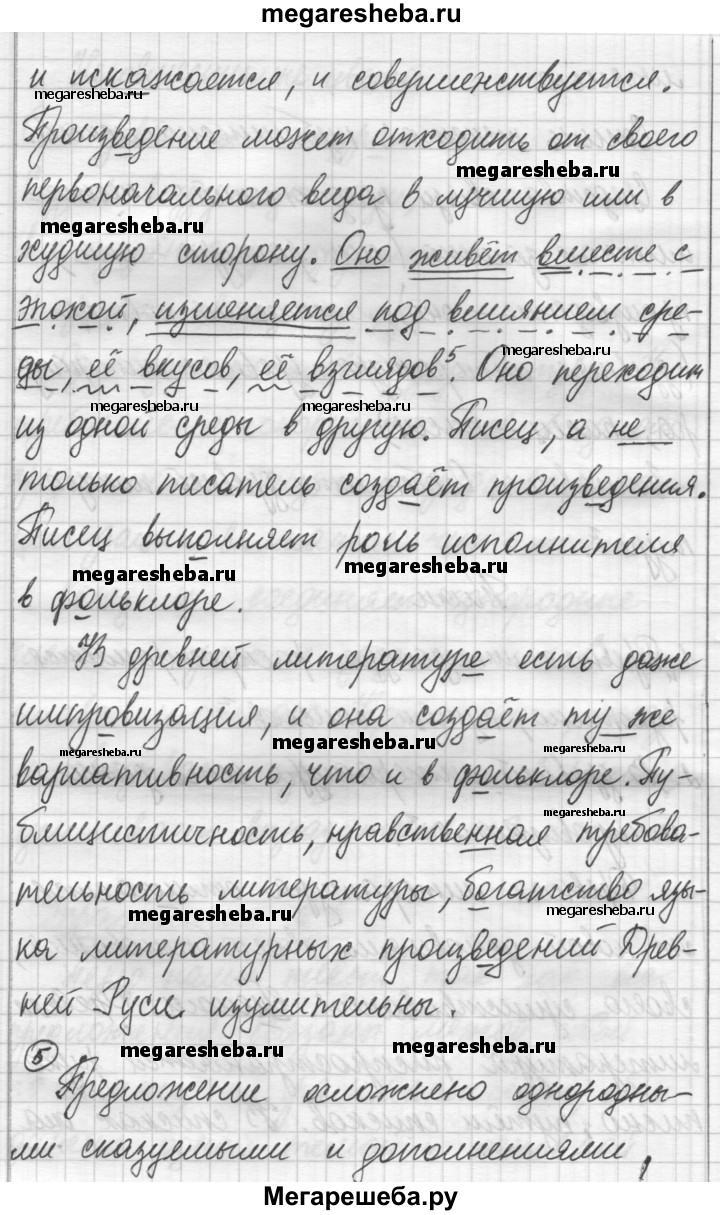 megaresheba.ru
и искажается, и совершенствуется.
megaresheba.ru
Произведение может отходить от своего
megaresheba.ru
первоначального вида в лучшую или в
megaresheba.ru
худшую сторону. Оно живёт вместе с
эпохой, изменяется под влиянием сре-
megaresheba.ru
ды, её вкусов, её взглядов⁵. Оно переходит
megaresheba.ru megaresheba.ru
из одной среды в другую. Писец, а не
только писатель создаёт произведения.
Писец выполняет роль исполнителя
megaresheba.ru megaresheba.ru
в фольклоре.
В древней литературе есть даже
импровизация, и она создаёт ту же
megaresheba.ru megaresheba.ru megaresheba.ru
вариативность, что и в фольклоре. Пу-
megaresheba.ru
блицистичность, нравственная требова-
тельность литературы, богатство язы-
megaresheba.ru megaresheba.ru
ка литературных произведений Древ-
ней Руси изумительны.
megaresheba.ru megaresheba.ru
5 Предложение осложнено однородны-
ми сказуемыми и дополнениями
Мегарешеба.ру